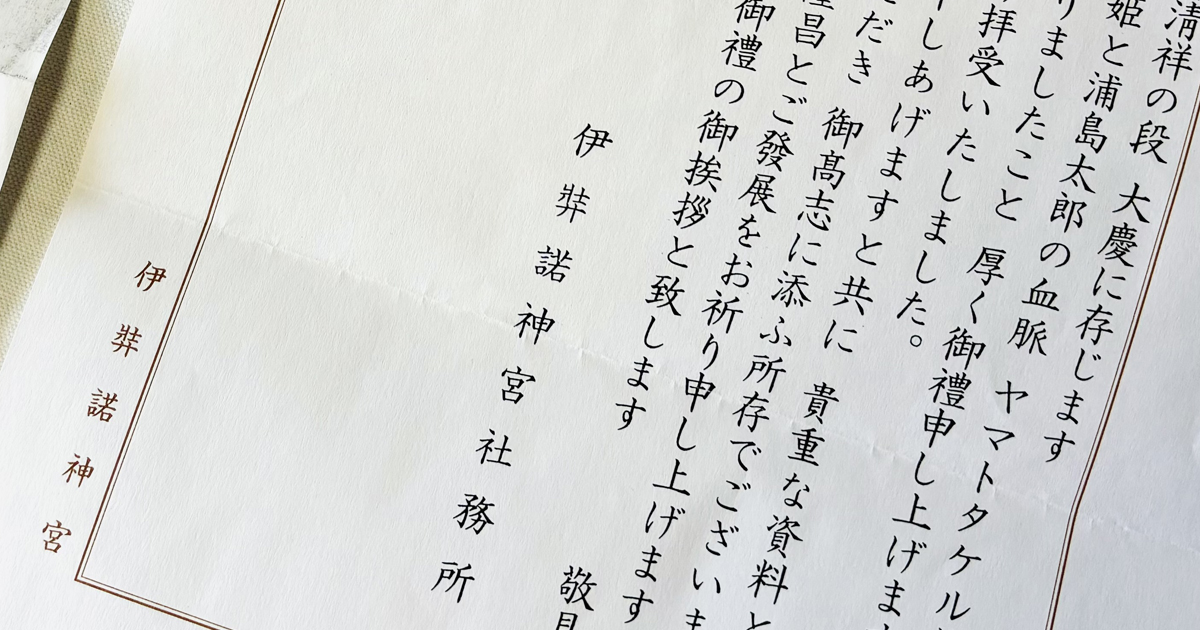 清祥の段 大慶に存じます
姫と浦島太郎の血脈 ヤマトタケル
りましたこと 厚く御禮申し上げまし
拝受いたしました。
しあげますと共に 貴重な資料と
だき 御髙志に添ふ所存でございま
昌とご發展をお祈り申し上げます
御禮の御挨拶と致します
敬具
伊弉諾神宮社務所
伊弉諾神宮